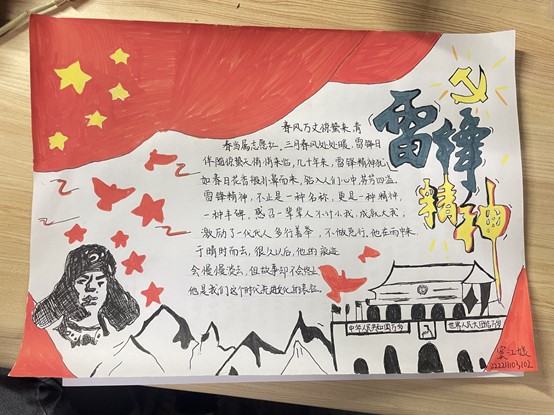 雷锋
精神
春风万丈倾蛰来,满
春芳属志愿红。三月春风处处暖,雷锋日
伴随惊蛰天悄悄来临,几十年来,雷锋精神犹
如春日花香徽扑鼻而来,钻入人们心中,芳芳四溢。
雷锋精神,不止是一种名称,更是一种精神,
一种丰碑,感召一辈辈人不小我,成就大我,
激励了一代代人多行善举,不做恶行,他在雨中来,
于晴时而去,很久以后,他的痕迹
会慢慢淡去,但故事却不会停止
他是我们这个时代先进文化的表征。
中华人民共和国万岁
世界人民大团结万岁
江